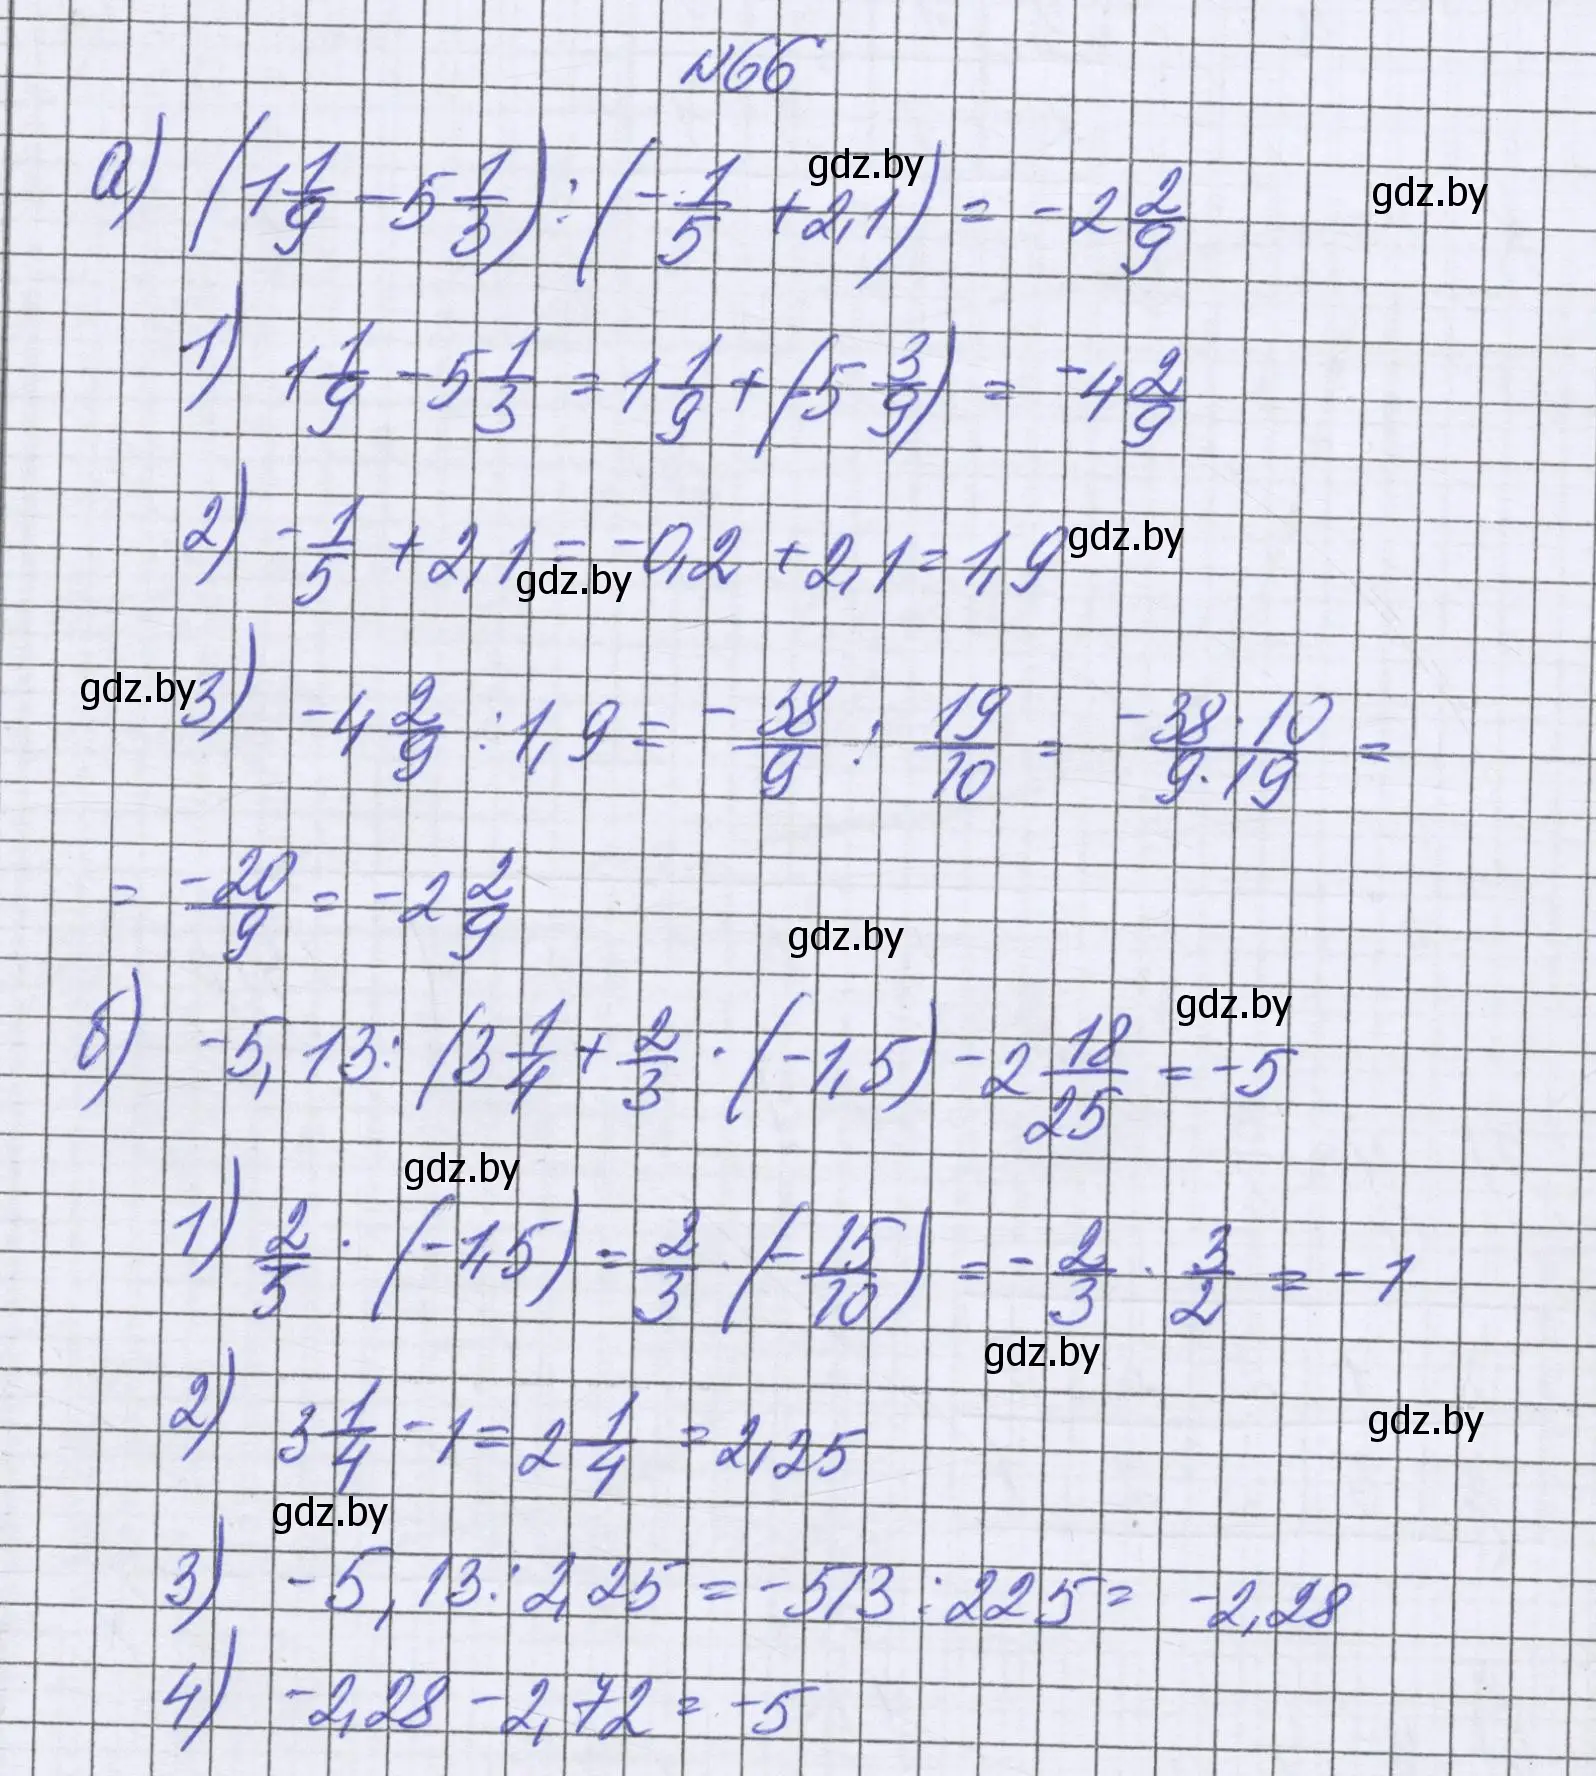 №66
а) (1 1/9 - 5 1/3) : (- 1/5 + 2,1) = - 2 2/9
gdz.by
gdz.by
1) 1 1/9 - 5 1/3 = 1 1/9 + (-5 3/9) = - 4 2/9
2) - 1/5 + 2,1 = - 0,2 + 2,1 = 1,9
gdz.by
gdz.by
gdz.by
3) - 4 2/9 : 1,9 = - 38/9 : 19/10 = - 38·10/9·19 =
= - 20/9 = - 2 2/9
gdz.by
gdz.by
б) - 5,13 : (3 1/4 + 2/3 · (-1,5) - 2 18/25 = - 5
gdz.by
1) 2/3 · (-1,5) = 2/3 · (- 15/10) = - 2/3 · 3/2 = - 1
gdz.by
2) 3 1/4 - 1 = 2 1/4 = 2,25
gdz.by
gdz.by
3) - 5,13 : 2,25 = - 513 : 225 = - 2,28
4) - 2,28 - 2,72 = - 5